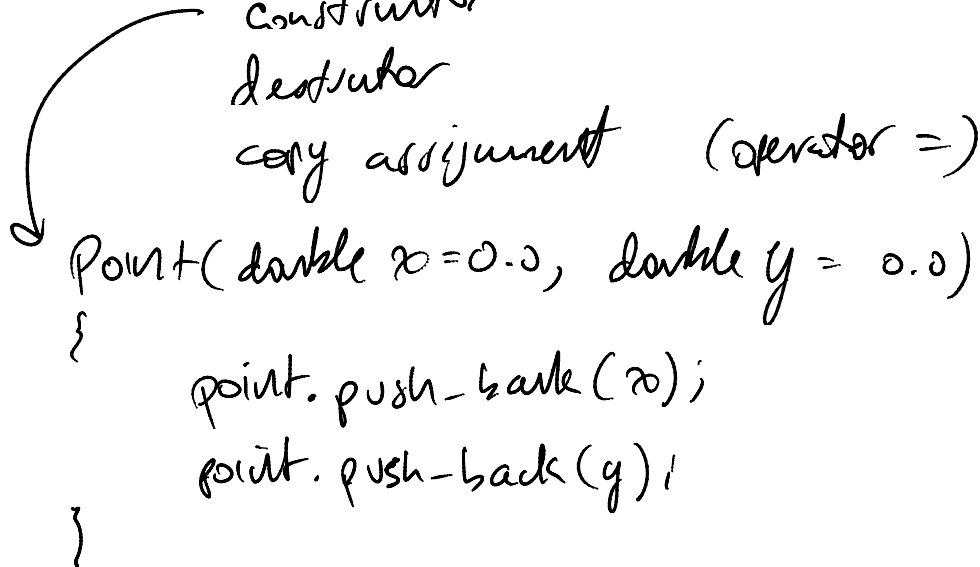 constructor
destructor
copy assignment (operator =)
Point(double x=0.0, double y = 0.0)
{
point.push_back(x);
point.push_back(y);
}